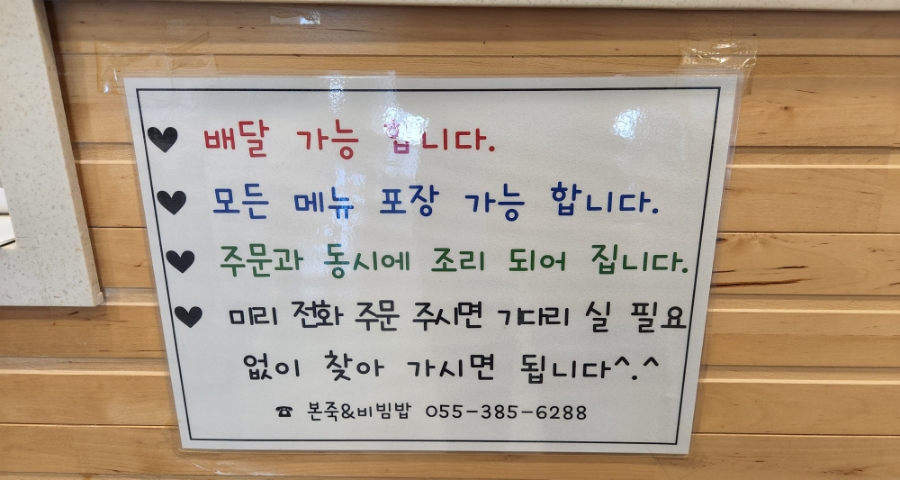 ♥ 배달 가능 합니다.
♥ 모든 메뉴 포장 가능 합니다.
♥ 주문과 동시에 조리 되어 집니다.
♥ 미리 전화 주문 주시면 기다리 실 필요
없이 찾아 가시면 됩니다^.^
☎ 본죽&비빔밥 055-385-6288